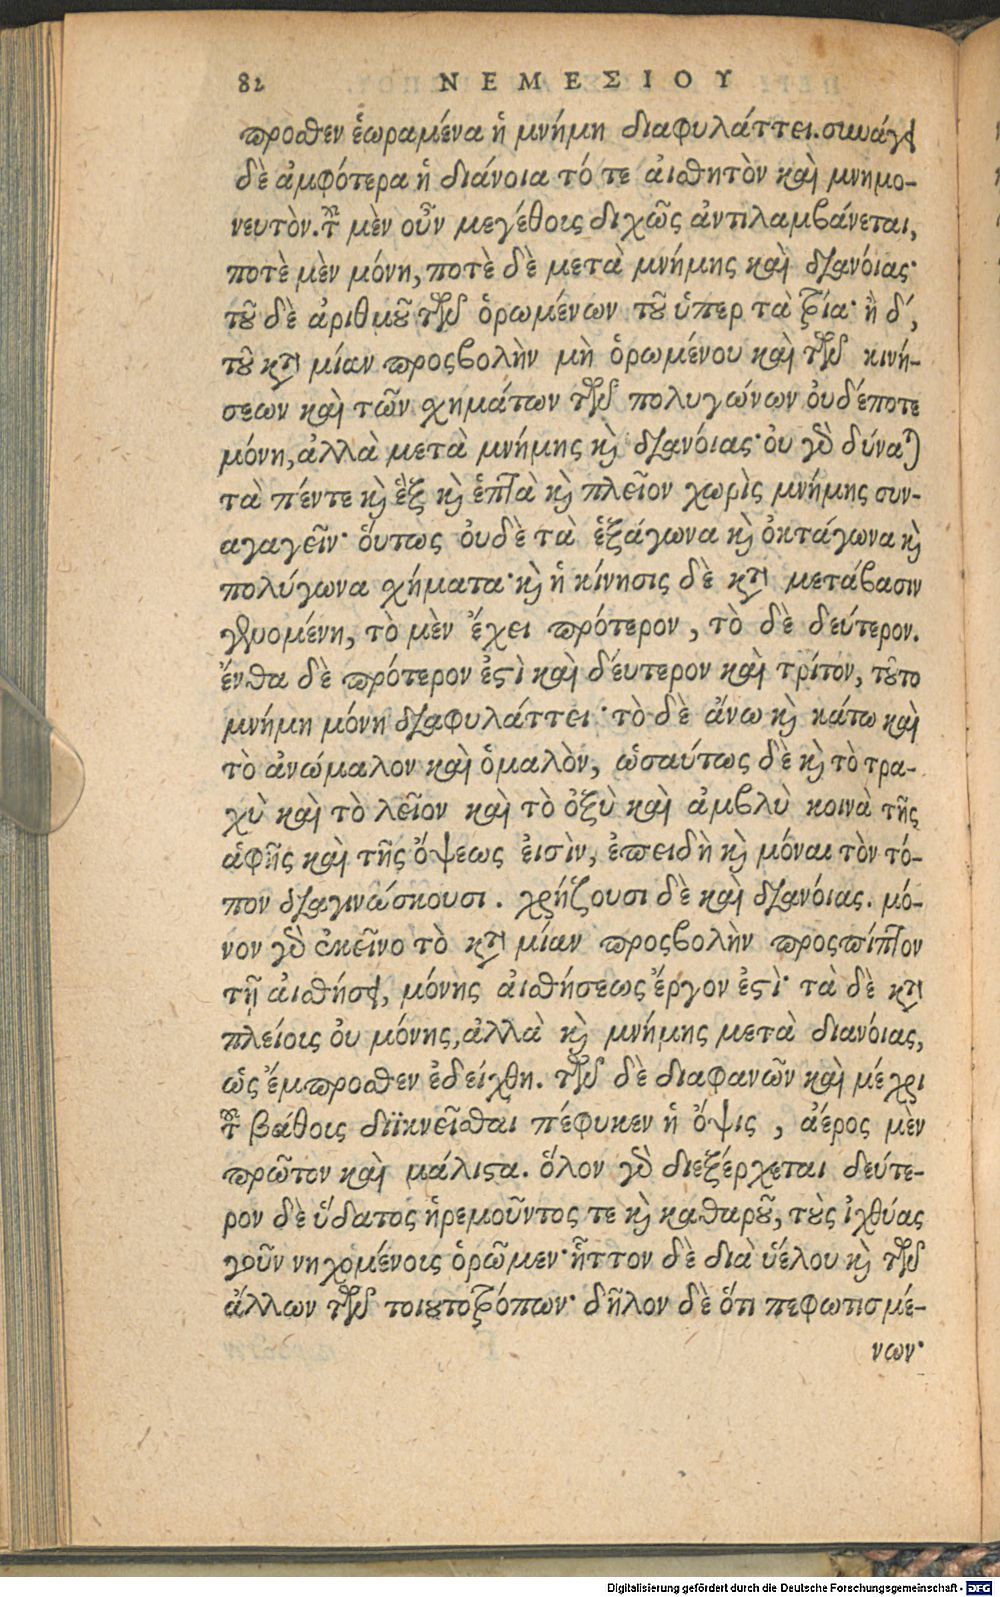 82 ΝΕΜΕΣΙΟΥ
προσθεν ἑωραμένα ἡ μνήμη διαφυλάττει. συνάγει
δὲ ἀμφότερα ἡ διάνοια τό τε αἰσθητὸν καὶ μνημο-
νευτὸν. τοῦ μὲν οὖν μεγέθους διχῶς ἀντιλαμβάνεται,
ποτὲ μὲν μόνη, ποτὲ δὲ μετὰ μνήμης καὶ διανόιας·
τοῦ δὲ ἀριθμοῦ τῶν ὁρωμένων τοῦ ὑπερ τὰ τρία· ἢ δ́,
τοῦ κατὰ μίαν προσβολὴν μὴ ὁρωμένου καὶ τῶν κινή-
σεων καὶ τῶν σχημάτων τῶν πολυγώνων οὐδέποτε
μόνη, ἀλλὰ μετὰ μνήμης καὶ διανόιας· ὀυ γὰρ δύναται
τὰ πέντε καὶ ἓξ καὶ ἑπτὰ καὶ πλεῖον χωρὶς μνήμης συν-
αγαγεῖν· ὅυτως ὀυδὲ τὰ ἑξάγωνα καὶ ὀκτάγωνα καὶ
πολύγωνα σχήματα· καὶ ἡ κίνησις δὲ κατὰ μετάβασιν
γινομένη, τὸ μὲν ἔχει πρότερον, τὸ δὲ δεύτερον.
ἔνθα δὲ πρότερον ἐστὶ καὶ δέυτερον καὶ τρίτον, τοῦτο
μνήμη μόνη διαφυλάττει· τὸ δὲ ἄνω καὶ κάτω καὶ
τὸ ἀνώμαλον καὶ ὁμαλὸν, ὡσαύτως δὲ καὶ τὸ τρα-
χὺ καὶ τὸ λεῖον καὶ τὸ ὀξὺ καὶ ἀμβλὺ κοινὰ τῆς
ἁφῆς καὶ τῆς ὄψεως ἐισὶν, ἐπειδὴ καὶ μόναι τὸν τό-
πον διαγινώσκουσι. χρήζουσι δὲ καὶ διανόιας. μό-
νον γὰρ ἐκεῖνο τὸ κατὰ μίαν προσβολὴν προσπίπτον
τῇ αἰσθήσει, μόνης αἰσθήσεως ἔργον ἐστὶ· τὰ δὲ κατὰ
πλείους ὀυ μόνης, ἀλλὰ καὶ μνήμης μετὰ διανόιας,
ὡς ἔμπροσθεν ἐδείχθη. τῶν δὲ διαφανῶν καὶ μέχρι
τοῦ βάθους διϊκνεῖσθαι πέφυκεν ἡ ὄψις, ἀέρος μὲν
πρῶτον καὶ μάλιστα. ὅλον γὰρ διεξέρχεται δεύτε-
ρον δὲ ὕδατος ἠρεμοῦντος τε καὶ καθαροῦ, τοὺς ἰχθύας
γοῦν νηχομένους ὁρῶμεν· ἧττον δὲ διὰ ὑέλου καὶ τῶν
ἄλλων τῶν τοιουτοτρόπων· δῆλον δὲ ὅτι πεφωτισμέ-
νων·
Digitalisierung gefördert durch die Deutsche Forschungsgemeinschaft - DFG